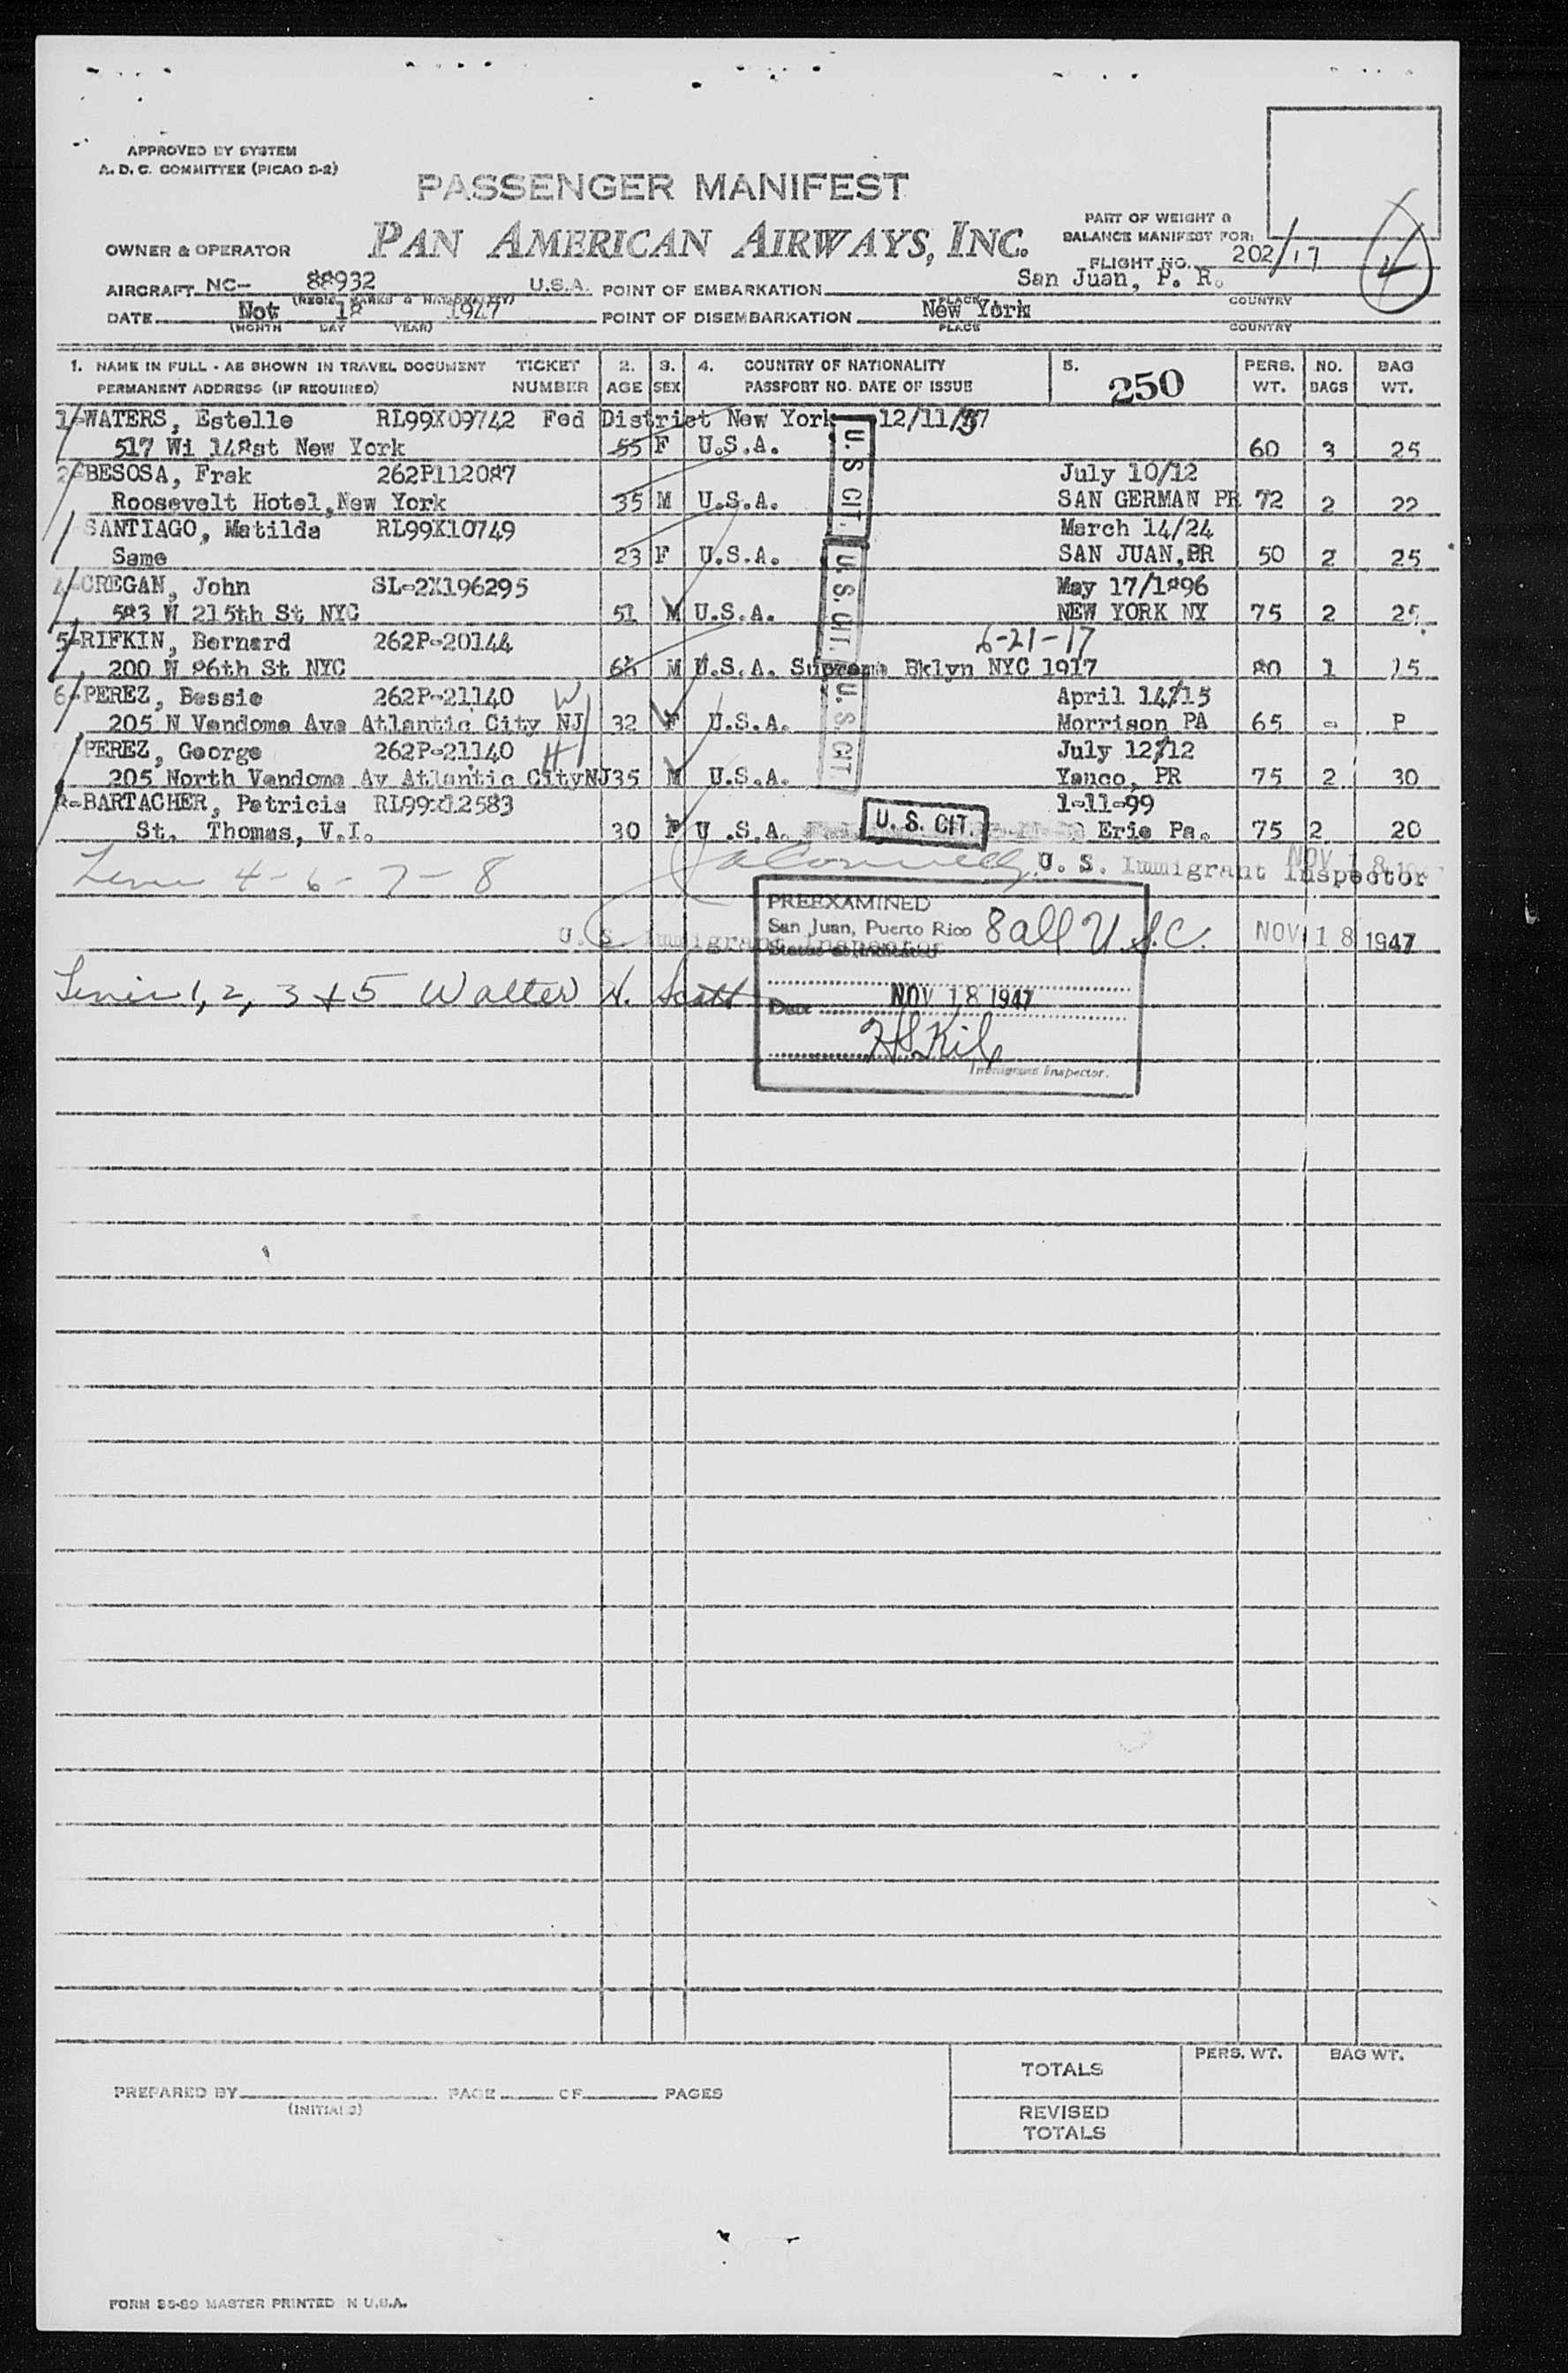 APPROVED BY SYSTEM
A. D. C. COMMITTEE (PICAO 3-2)
PASSENGER MANIFEST
PAN AMERICAN AIRWAYS, INC.
OWNER & OPERATOR
PART OF WEIGHT &
BALANCE MANIFEST FOR:
FLIGHT NO. 202/17
AIRCRAFT NC- 88932 U.S.A. POINT OF EMBARKATION San Juan, P. R.
(REGIS. MARKS & NATIONALITY) PLACE COUNTRY
DATE Not 18 1947 POINT OF DISEMBARKATION New York
(MONTH DAY YEAR) PLACE COUNTRY
1. NAME IN FULL - AS SHOWN IN TRAVEL DOCUMENT TICKET 2. 3. 4. COUNTRY OF NATIONALITY 5. PERS. NO. BAG
PERMANENT ADDRESS (IF REQUIRED) NUMBER AGE SEX PASSPORT NO. DATE OF ISSUE 250 WT. BAGS WT.
1-WATERS, Estelle RL99X09742 Fed District New York 12/11/37
517 Wi 148st New York 55 F U.S.A. 60 3 25
2-BESOSA, Frak 262P112087 July 10/12
Roosevelt Hotel, New York 35 M U.S.A. SAN GERMAN PR 72 2 22
SANTIAGO, Matilda RL99X10749 March 14/24
Same 23 F U.S.A. SAN JUAN, PR 50 2 25
4-CREGAN, John SL-2X196295 May 17/1896
583 W 215th St NYC 51 M U.S.A. NEW YORK NY 75 2 25
5-RIFKIN, Bernard 262P-20144 6-21-17
200 W 86th St NYC M U.S.A. Supreme Bklyn NYC 1917 80 1 15
6-PEREZ, Bessie 262P-21140 W April 14/15
205 N Vendome Ave Atlantic City NJ 32 F U.S.A. Morrison PA 65 - P
PEREZ, George 262P-21140 H July 12/12
205 North Vendome Av Atlantic CityNJ 35 M U.S.A. Yauco, PR 75 2 30
8-BARTACHER, Patricia RL99x12583 1-11-99
St. Thomas, V.I. 30 F U.S.A. Erie Pa. 75 2 20
U. S. CIT.
U. S. CIT.
U. S. CIT.
U. S. CIT.
4-6-7-8 U. S. Immigrant Inspector NOV 18
PREEXAMINED
San Juan, Puerto Rico 8 all U.S.C. NOV 18 1947
U. S. Immigrant Inspector
Status as indicated
1, 2, 3 + 5 Walter H. Scott
Date NOV 18 1947
Immigrant Inspector.
TOTALS PERS. WT. BAG WT.
PREPARED BY PAGE OF PAGES
(INITIALS)
REVISED
TOTALS
FORM 35-80 MASTER PRINTED IN U.S.A.